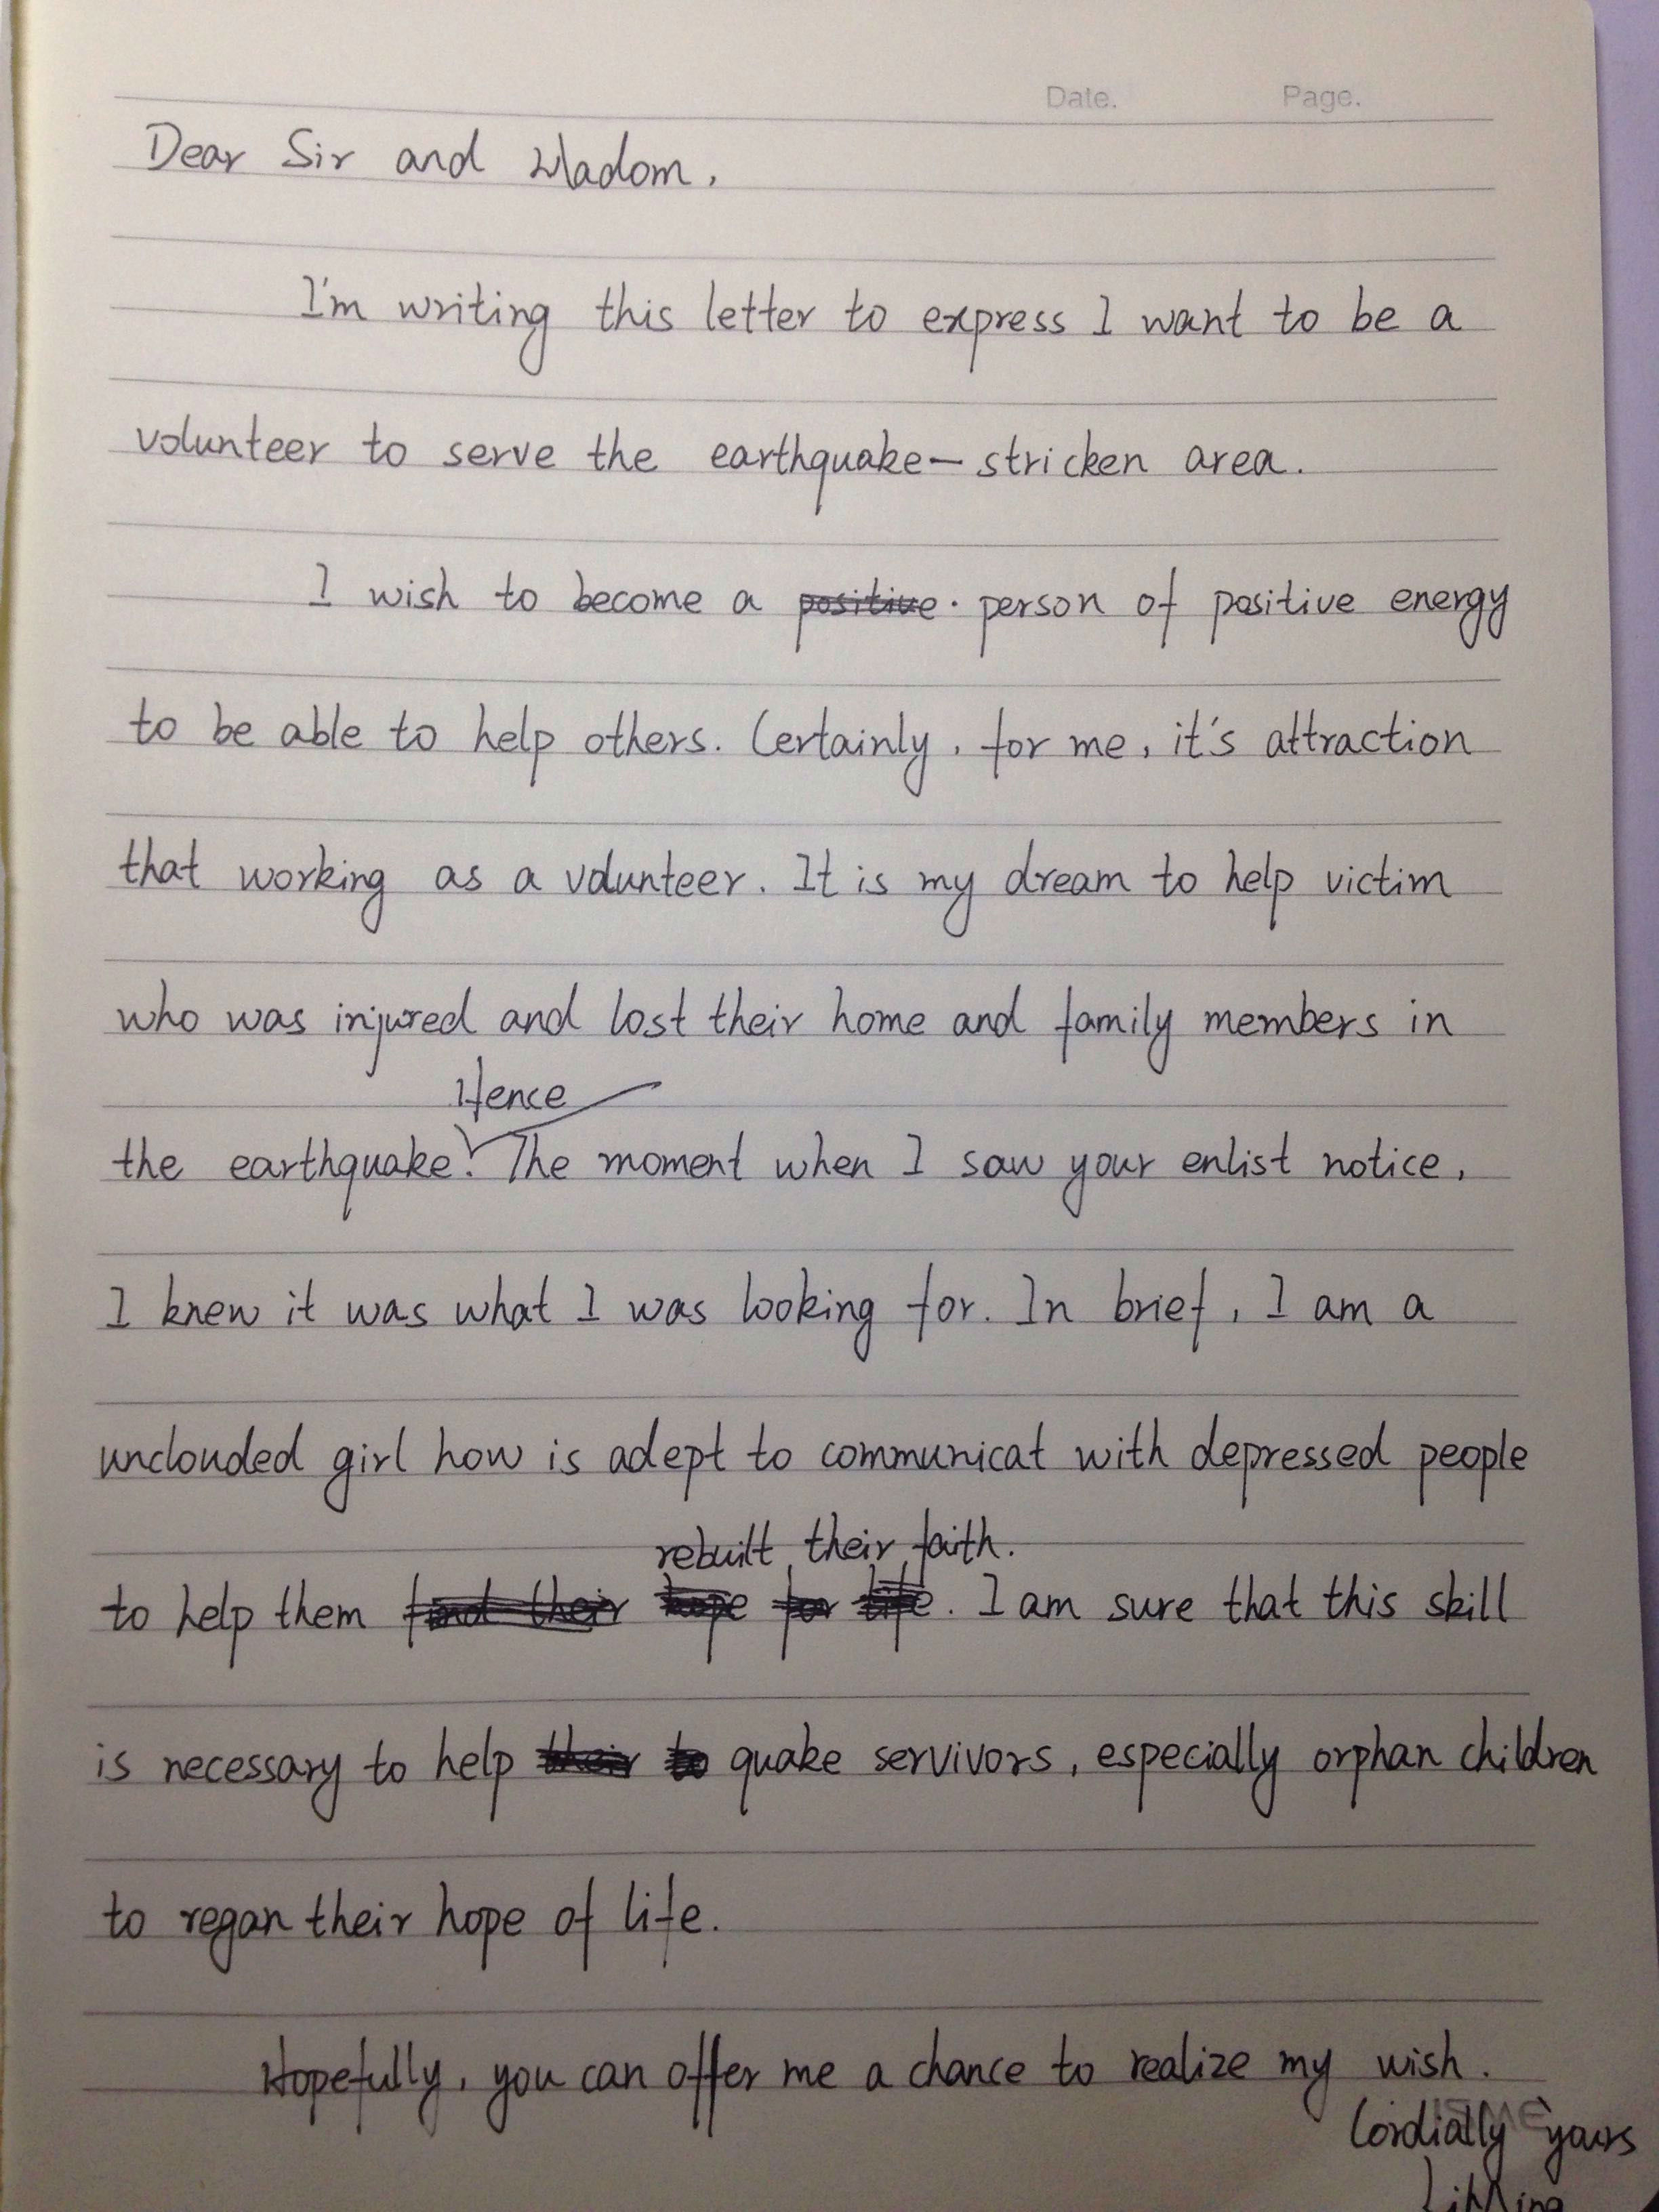 Date. Page.
Dear Sir and Madom,
I'm writing this letter to express I want to be a
volunteer to serve the earthquake-stricken area.
I wish to become a positive. person of positive energy
to be able to help others. Certainly, for me, it's attraction
that working as a volunteer. It is my dream to help victim
who was injured and lost their home and family members in
Hence
the earthquake. The moment when I saw your enlist notice,
I knew it was what I was looking for. In brief, I am a
unclouded girl how is adept to communicat with depressed people
rebuilt their faith.
to help them find their hope for life. I am sure that this skill
is necessary to help their to quake servivors, especially orphan children
to regan their hope of life.
Hopefully, you can offer me a chance to realize my wish.
Cordially yours